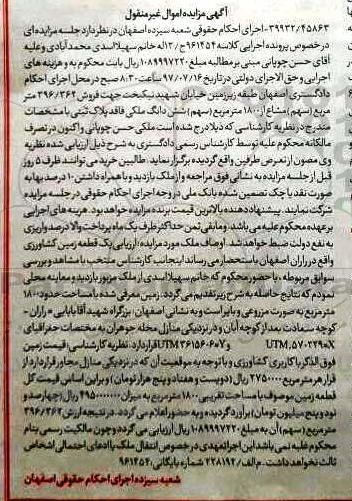 آگهی مزایده اموال غیر منقول
۳۹۹۳۲/۴۵۸۶۳- اجرای احکام حقوقی شعبه سیزده اصفهان در نظر دارد جلسه مزایده ای
در خصوص پرونده اجرایی کلاسه ۹۶۱۴۵۴ ج/۱۳ له خانم سهیلا اسدی محمدآبادی و علیه
آقای حسن چوپانی مبنی بر مطالبه مبلغ ۱۰۸۹۹۹۷۲۲۰ ریال بابت محکوم به و هزینه های
اجرایی و حق الاجرای دولتی در تاریخ ۹۷/۰۷/۱۶ ساعت ۸:۳۰ صبح در محل اجرای احکام
دادگستری اصفهان طبقه زیرزمین خیابان شهید نیکبخت جهت فروش ۳۹۶/۳۶۲ متر
مربع (سهم) مشاع از ۱۸۰۰ متر مربع (سهم) شش دانگ ملکی فاقد پلاک ثبتی با مشخصات
مندرج در نظریه کارشناسی که ذیلا درج شده است ملکی حسن چوپانی و اکنون در تصرف
مالکانه محکوم علیه توسط کارشناس رسمی دادگستری به شرح ذیل ارزیابی شده نظریه
وی مصون از تعرض طرفین واقع گردیده برگزار نماید. طالبین خرید می توانند ظرف ۵ روز
قبل از جلسه مزایده به نشانی فوق مراجعه و از ملک بازدید و با همراه داشتن ۱۰ درصد بها به
صورت نقد یا چک تضمین شده بانک ملی در وجه اجرای احکام حقوقی در جلسه مزایده
شرکت نمایند. پیشنهاد دهنده بالاترین قیمت برنده مزایده خواهد بود. هزینه های اجرایی
بر عهده محکوم علیه می باشد. و مابقی ثمن حداکثر ظرف یک ماه پرداخت والا درصد واریزی
به نفع دولت ضبط خواهد شد. اوصاف ملک مورد مزایده: ارزیابی یک قطعه زمین کشاورزی
واقع در راران اصفهان باستحضار می رساند اینجانب کارشناس منتخب با مشاهده و بررسی
سوابق مربوطه، با حضور محکوم له خانم سهیلا اسدی از ملک مزبور بازدید و معاینه محلی
نمودم که نتایج حاصله به شرح زیر تقدیم می گردد. زمین معرفی شده با مساحت حدود ۱۸۰۰
متر مربع به صورت مزروعی و بایر است و به نشانی اصفهان- بزرگراه شهید آقابابایی- راران-
کوچه سعادت بعد از کوچه آبان و در نزدیکی منازل محله جوهران به مختصات جغرافیایی
UTM,۵۷۰۲۲۹۰X و UTM۳۶۱۵۶۰۶۰۷۷ قرار دارد. نظریه کارشناسی: قیمت زمین
فوق الذکر با کاربری کشاورزی و با توجه به موقعیت آن که در نزدیکی منازل مجاور قرار دارد از
قرار هر متر مربع ۲۷۵۰۰۰۰ ریال (دویست و هفتاد و پنج هزار تومان) و بر این اساس قیمت کل
قطعه زمین موصوف با مساحت تقریبی ۱۸۰۰ متر مربع به میزان ۴۹۵۰۰۰۰۰۰۰ ریال (چهارصد و
نود و پنج میلیون تومان) برآورد گردیده و به حضور اعلام می گردد. در نتیجه ارزش ۳۹۶/۳۶۲
متر مربع (سهم) آن به مبلغ ۱۰۸۹۹۹۷۲۲۰ ریال ارزیابی می گردد و چون مالکیت رسمی بنام
محکوم علیه نمی باشد این اجرا تعهدی در خصوص انتقال ملک یا ادعای احتمالی اشخاص
ثالث نخواهد داشت. م الف/ ۲۲۸۱۹۲ شماره بایگانی: ۹۶۱۴۵۴
شعبه سیزده اجرای احکام حقوقی اصفهان